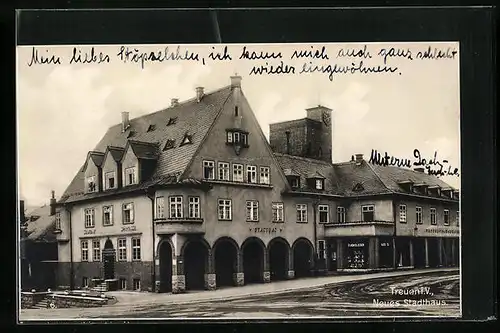 Mein liebes Stöpselchen, ich kann mich auch ganz schlecht
wieder eingewöhnen.
Unterne Dach-
STADTRAT
Treuen i.V.,
Neues Stadthaus.
6